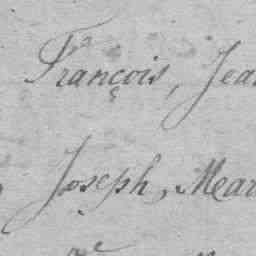 François, Jea
Joseph, Mear